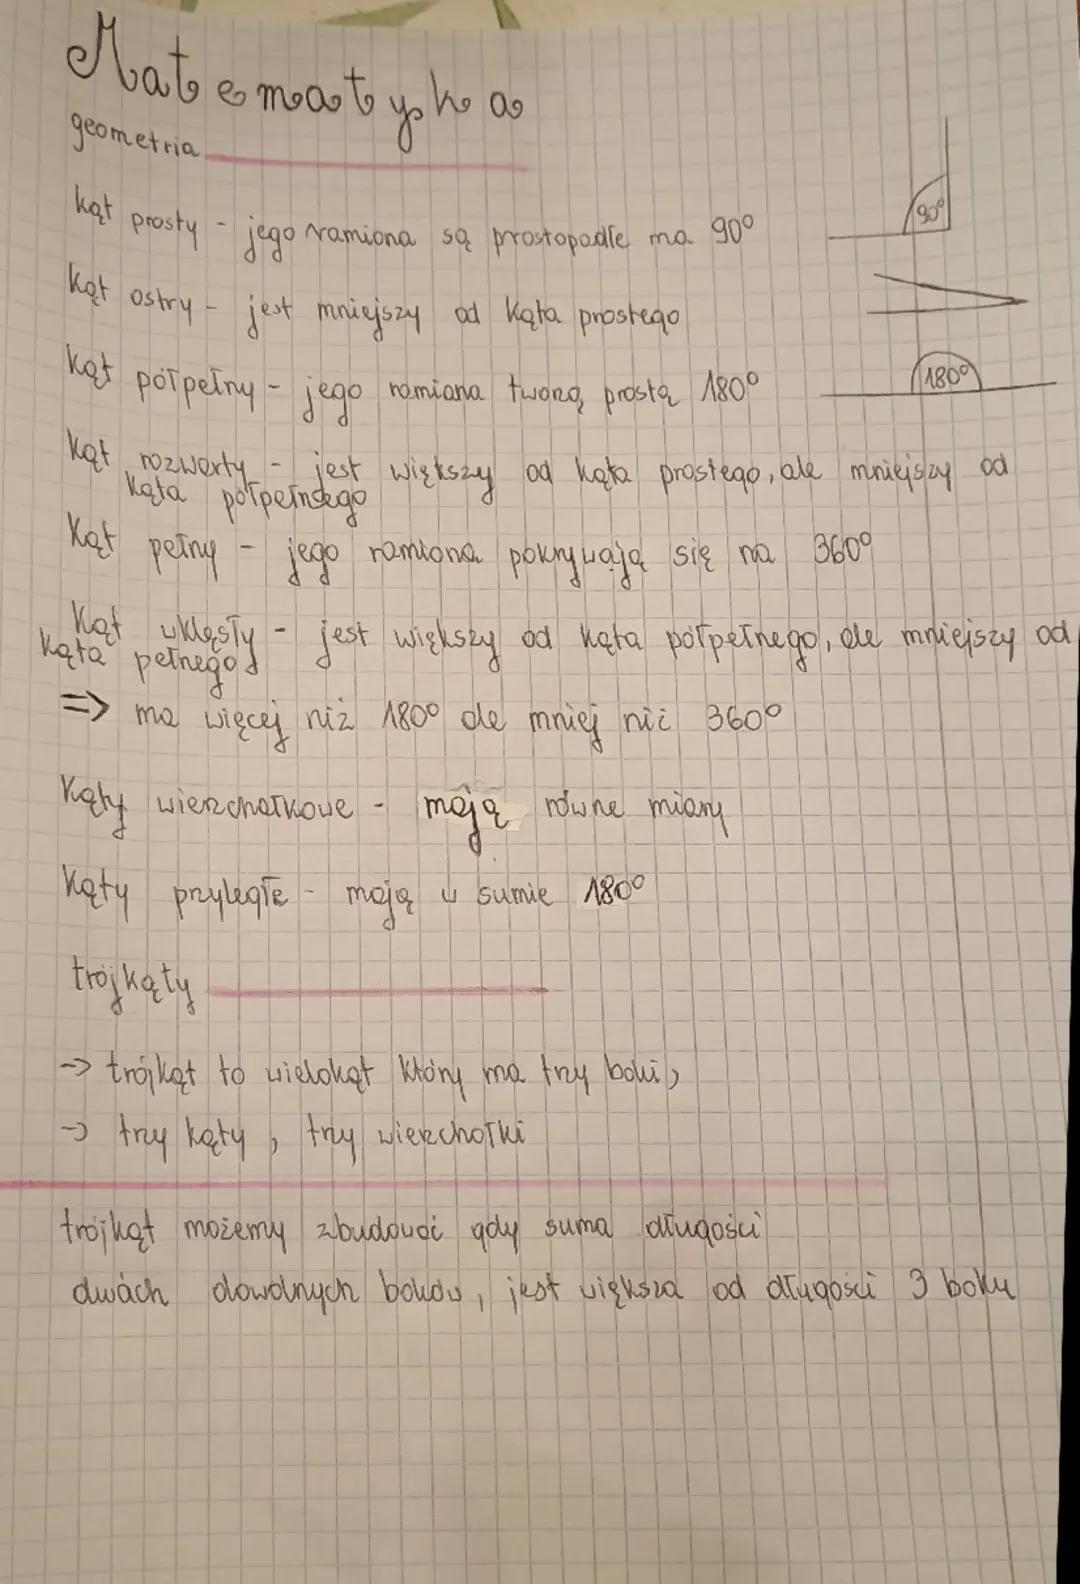 Matematyka
geometria
kąt prosty - jego ramiona są prostopadłe ma 90°
90°
kąt ostry - jest mniejszy od kąta prostego
kąt półpełny - jego ramiona tworzą prostą 180°
180°
kąt rozwarty - jest większy od kąta prostego, ale mniejszy od
kąta półpełnego
kąt pełny - jego ramiona pokrywają się ma 360°
kąt wklęsły - jest większy od kąta półpełnego, ale mniejszy od
kąta pełnego
=> ma więcej niż 180° ale mniej niż 360°
kąty wierzchołkowe - mają równe miary
kąty przyległe - mają w sumie 180°
trójkąty
-> trójkąt to wielokąt który ma trzy boki,
-> trzy kąty, trzy wierzchołki
trójkąt możemy zbudować gdy suma długości
dwóch dowolnych boków, jest większa od długości 3 boku